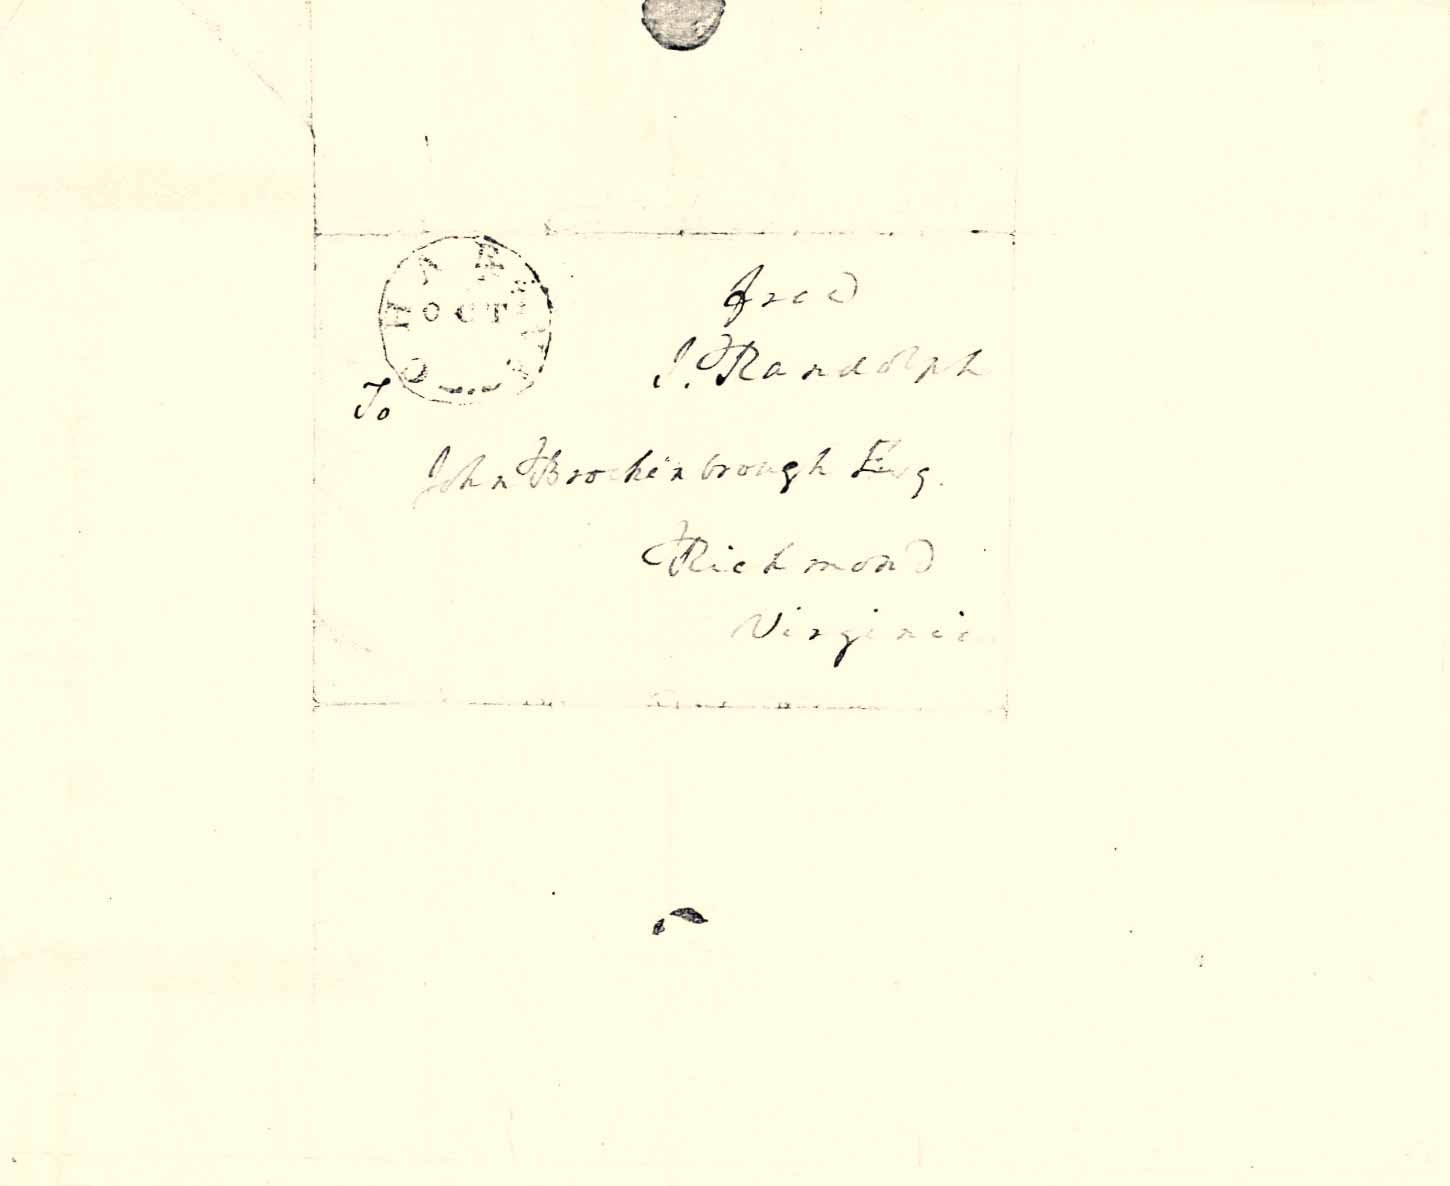 CHAR
OCT
free
J. Randolph
To
John Brockenbrough Esq.
Richmond
Virginia